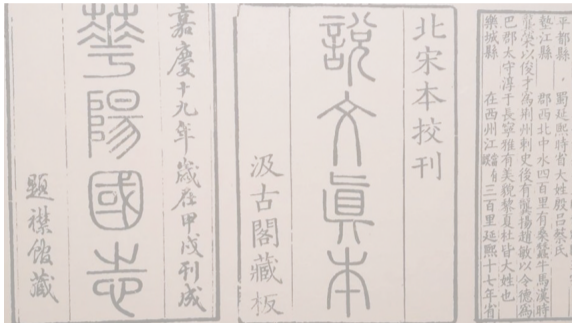 平都縣 蜀延熙時省大姓殷呂蔡氏
墊江縣 郡西北中水四百里有桑蠶牛馬漢時
龔榮以俊才為荆州刺史後有龔揚趙敏以令德為
巴郡太守淳于長寧雅有美貌黎夏杜皆大姓也
樂城縣 在西州江三百里延熙十七年省
北宋本挍刊
說文眞本
汲古閣藏板
嘉慶十九年歲在甲戌刊成
華陽國志
題襟館藏